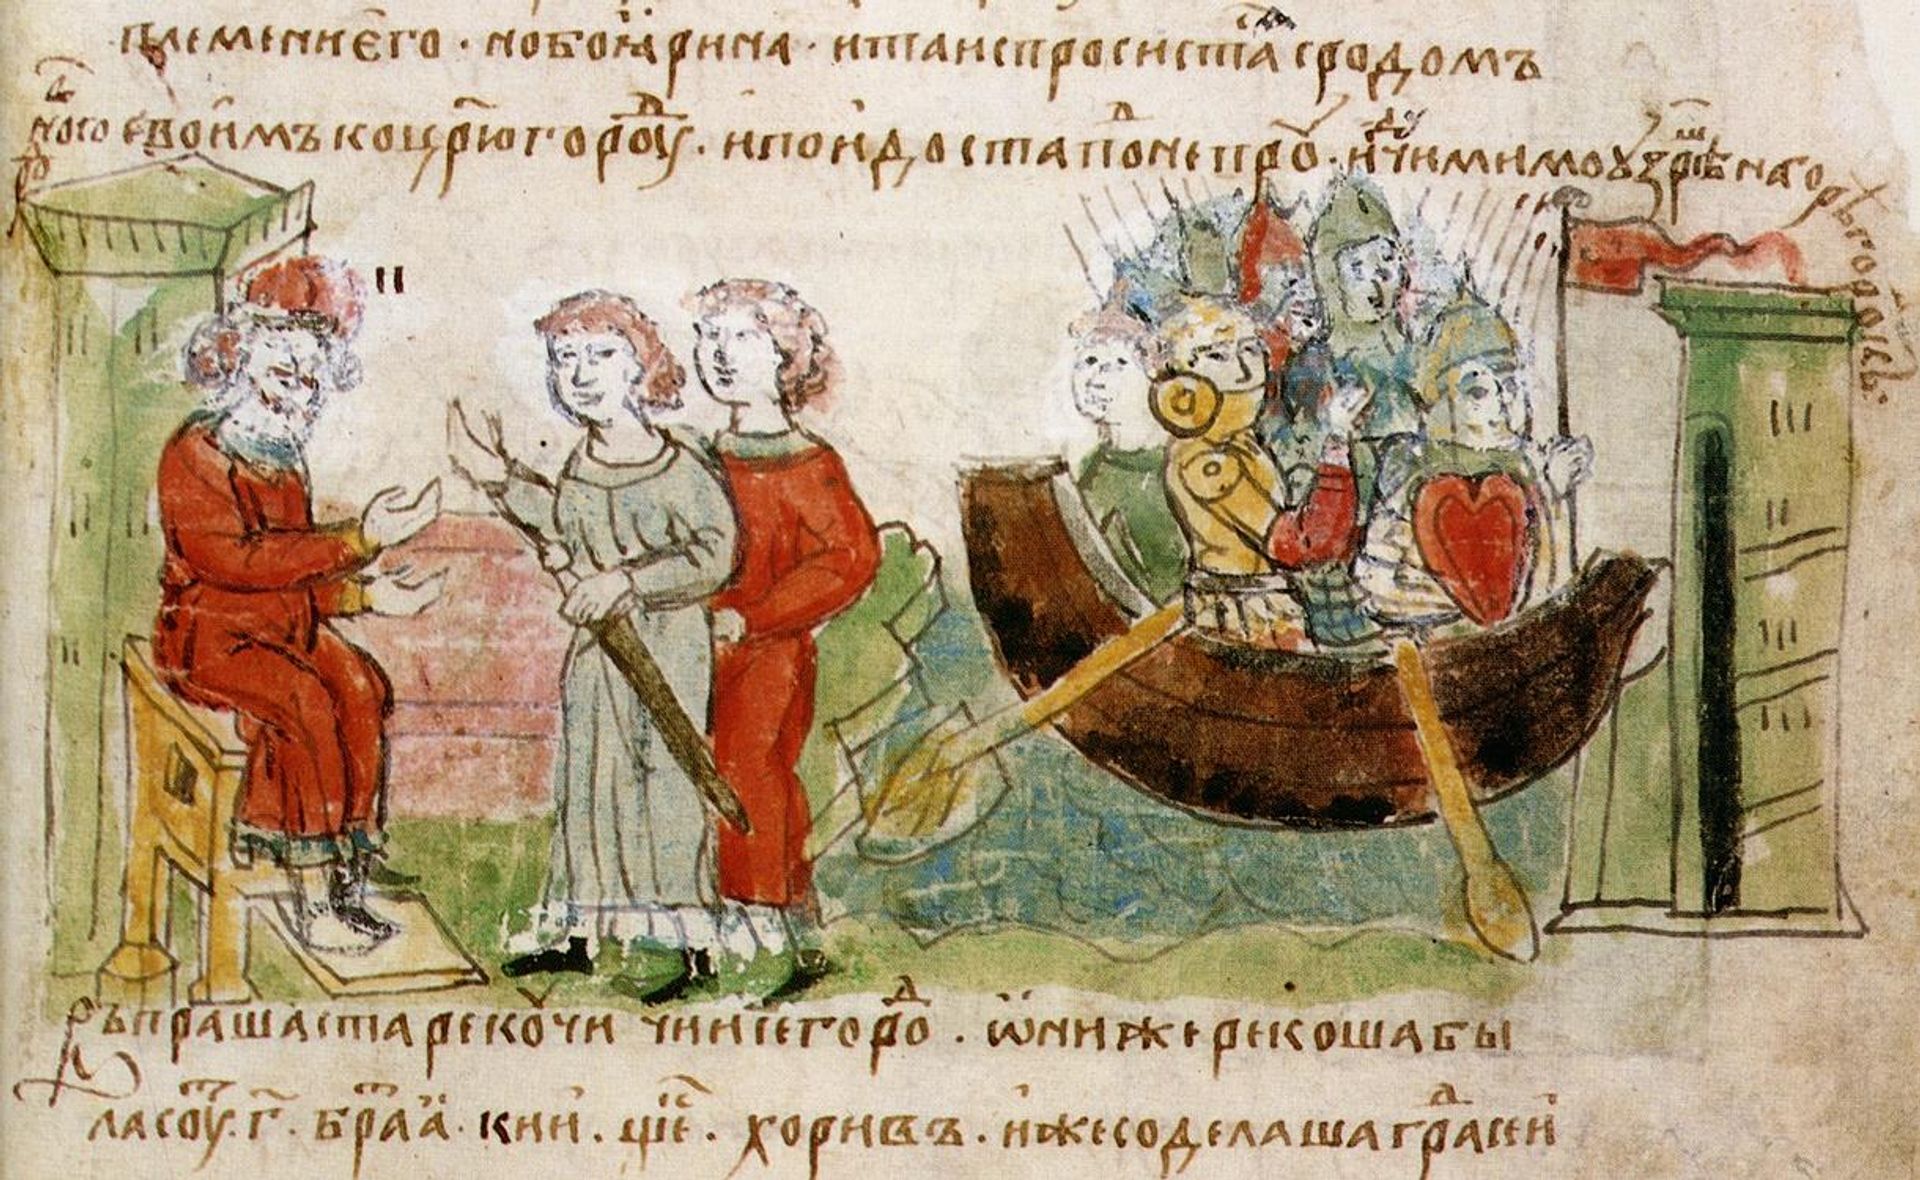 племени єго · но боꙗрина · и та испросистаⷭ с родомъ
своимъ ко цр҃ю горооуⷣ · и поидоста по непроⷣ · и идучи мимо узрѣша на горѣ городокъ ·
ръпрашаста рекоучи чии се гороⷣ · ѡни же рекоша бы
ла соуⷮ · г҃ · братьꙗ · кии · щекъ · хоривъ · иже соделаша граⷣ сеи